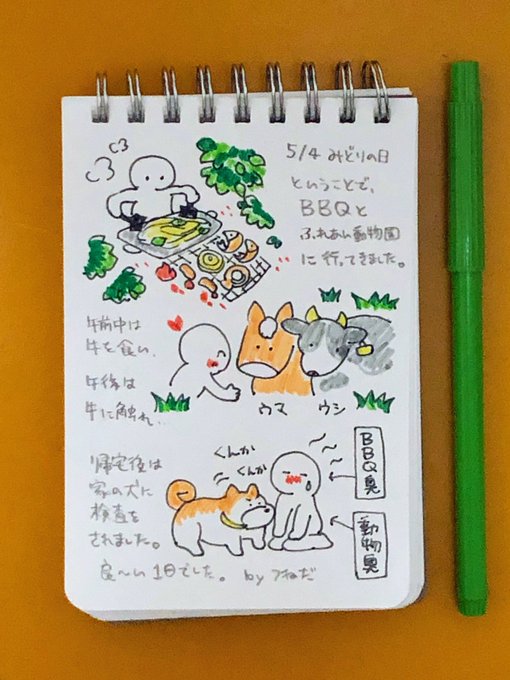 5/4 みどりの日
ということで、
BBQと
ふれあい動物園
に行ってきました。
午前中は
牛を食い、
午後は
牛に触れ…
ウマ ウシ
帰宅後は
家の犬に
検査を
されました。
くんか
くんか
BBQ臭
動物臭
良〜い1日でした。 by つねだ